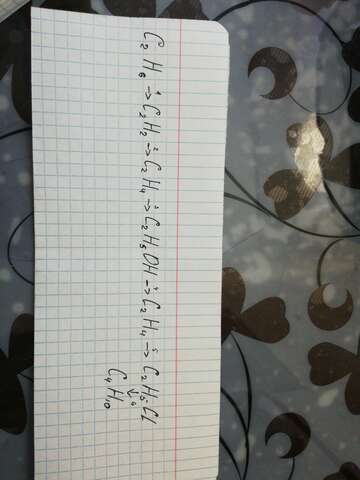 C₂H₆ →¹ C₂H₂ →² C₂H₄ →³ C₂H₅OH →⁴ C₂H₄ →⁵ C₂H₅Cl
↓ 6
C₄H₁₀